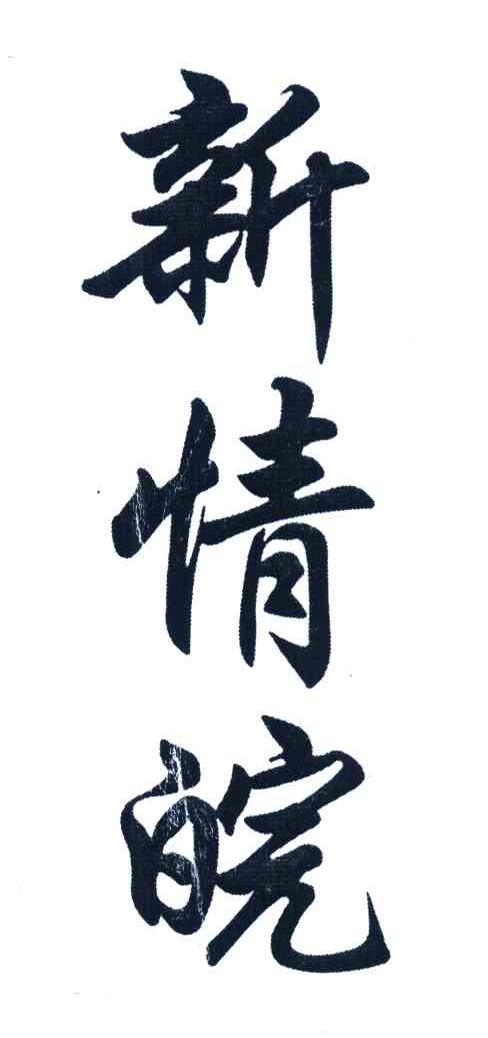 新情皖